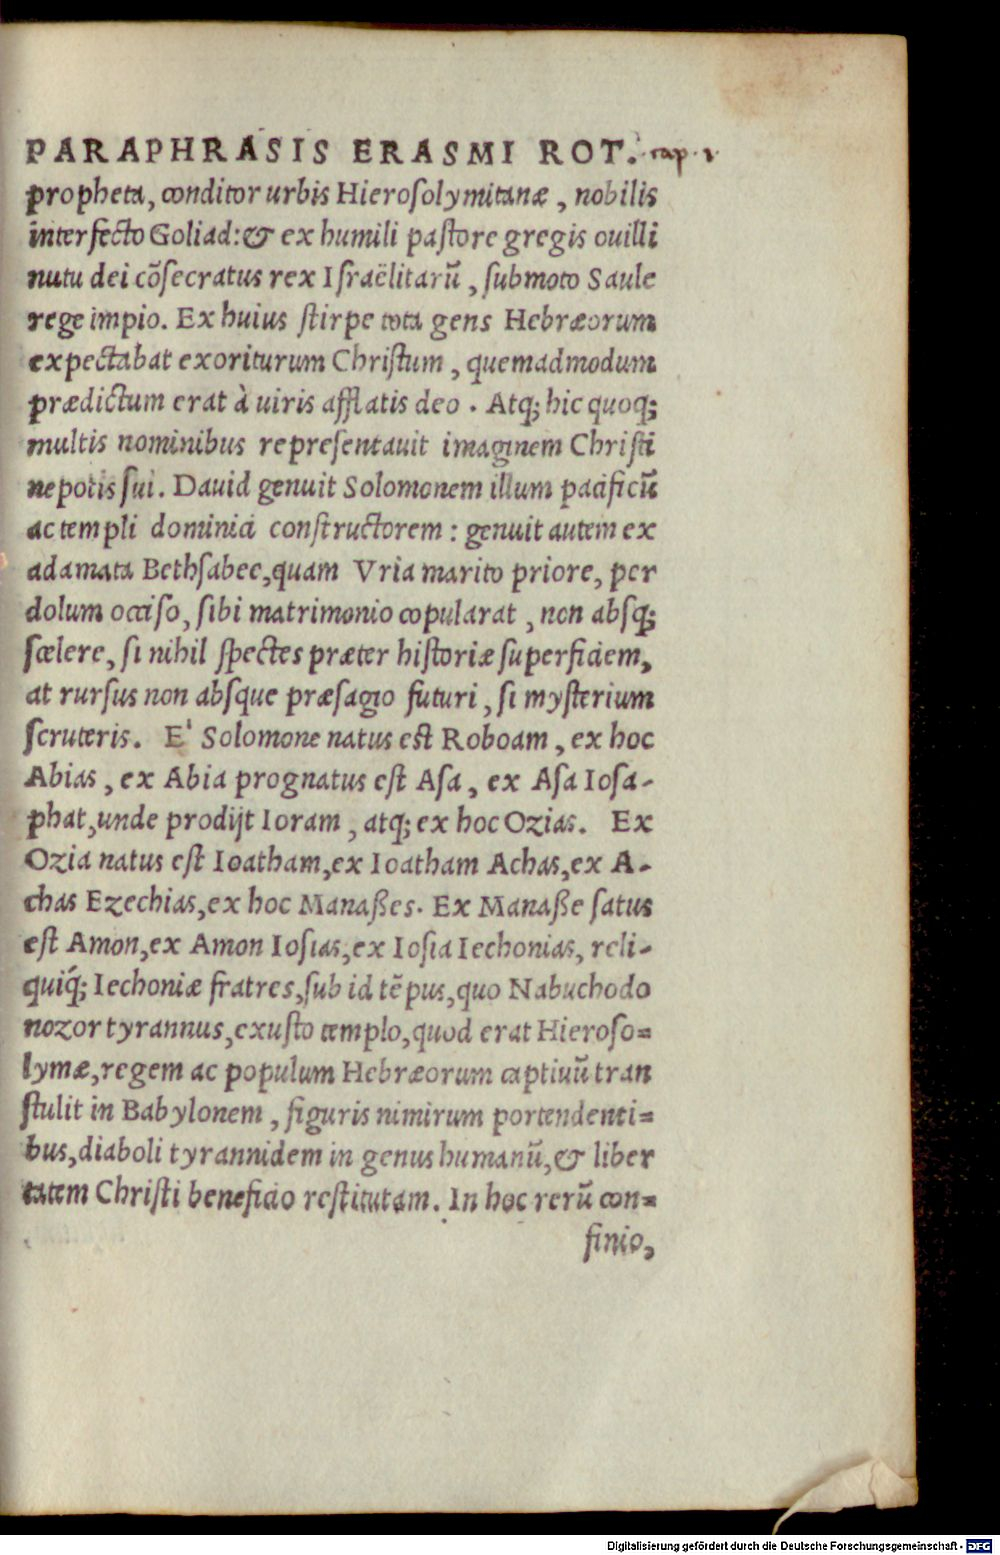 PARAPHRASIS ERASMI ROT. cap. 1
propheta, conditor urbis Hierosolymitanæ, nobilis
interfecto Goliad: & ex humili paſtore gregis ouilli
nutu dei cõſecratus rex Iſraëlitarũ, ſubmoto Saule
rege impio. Ex huius ſtirpe tota gens Hebræorum
expectabat exoriturum Chriſtum, quemadmodum
prædictum erat à uiris afflatis deo. Atq; hic quoq;
multis nominibus repreſentauit imaginem Chriſti
nepotis ſui. Dauid genuit Solomonem illum pacificũ
ac templi dominici conſtructorem: genuit autem ex
adamata Bethſabee, quam Vria marito priore, per
dolum occiſo, ſibi matrimonio copularat, non abſq;
ſcelere, ſi nihil ſpectes præter hiſtoriæ ſuperficiem,
at rurſus non abſque præſagio futuri, ſi myſterium
ſcruteris. E' Solomone natus eſt Roboam, ex hoc
Abias, ex Abia prognatus eſt Aſa, ex Aſa Ioſa-
phat, unde prodijt Ioram, atq; ex hoc Ozias. Ex
Ozia natus eſt Ioatham, ex Ioatham Achas, ex A-
chas Ezechias, ex hoc Manaßes. Ex Manaße ſatus
eſt Amon, ex Amon Ioſias, ex Ioſia Iechonias, reli-
quiq́; Iechoniæ fratres, ſub id tẽpus, quo Nabuchodo
nozor tyrannus, exuſto templo, quod erat Hieroſo=
lymæ, regem ac populum Hebræorum captiuũ tran
ſtulit in Babylonem, figuris nimirum portendenti=
bus, diaboli tyrannidem in genus humanũ, & liber
tatem Chriſti beneficio reſtitutam. In hoc rerũ con=
finio,
Digitalisierung gefördert durch die Deutsche Forschungsgemeinschaft - DFG